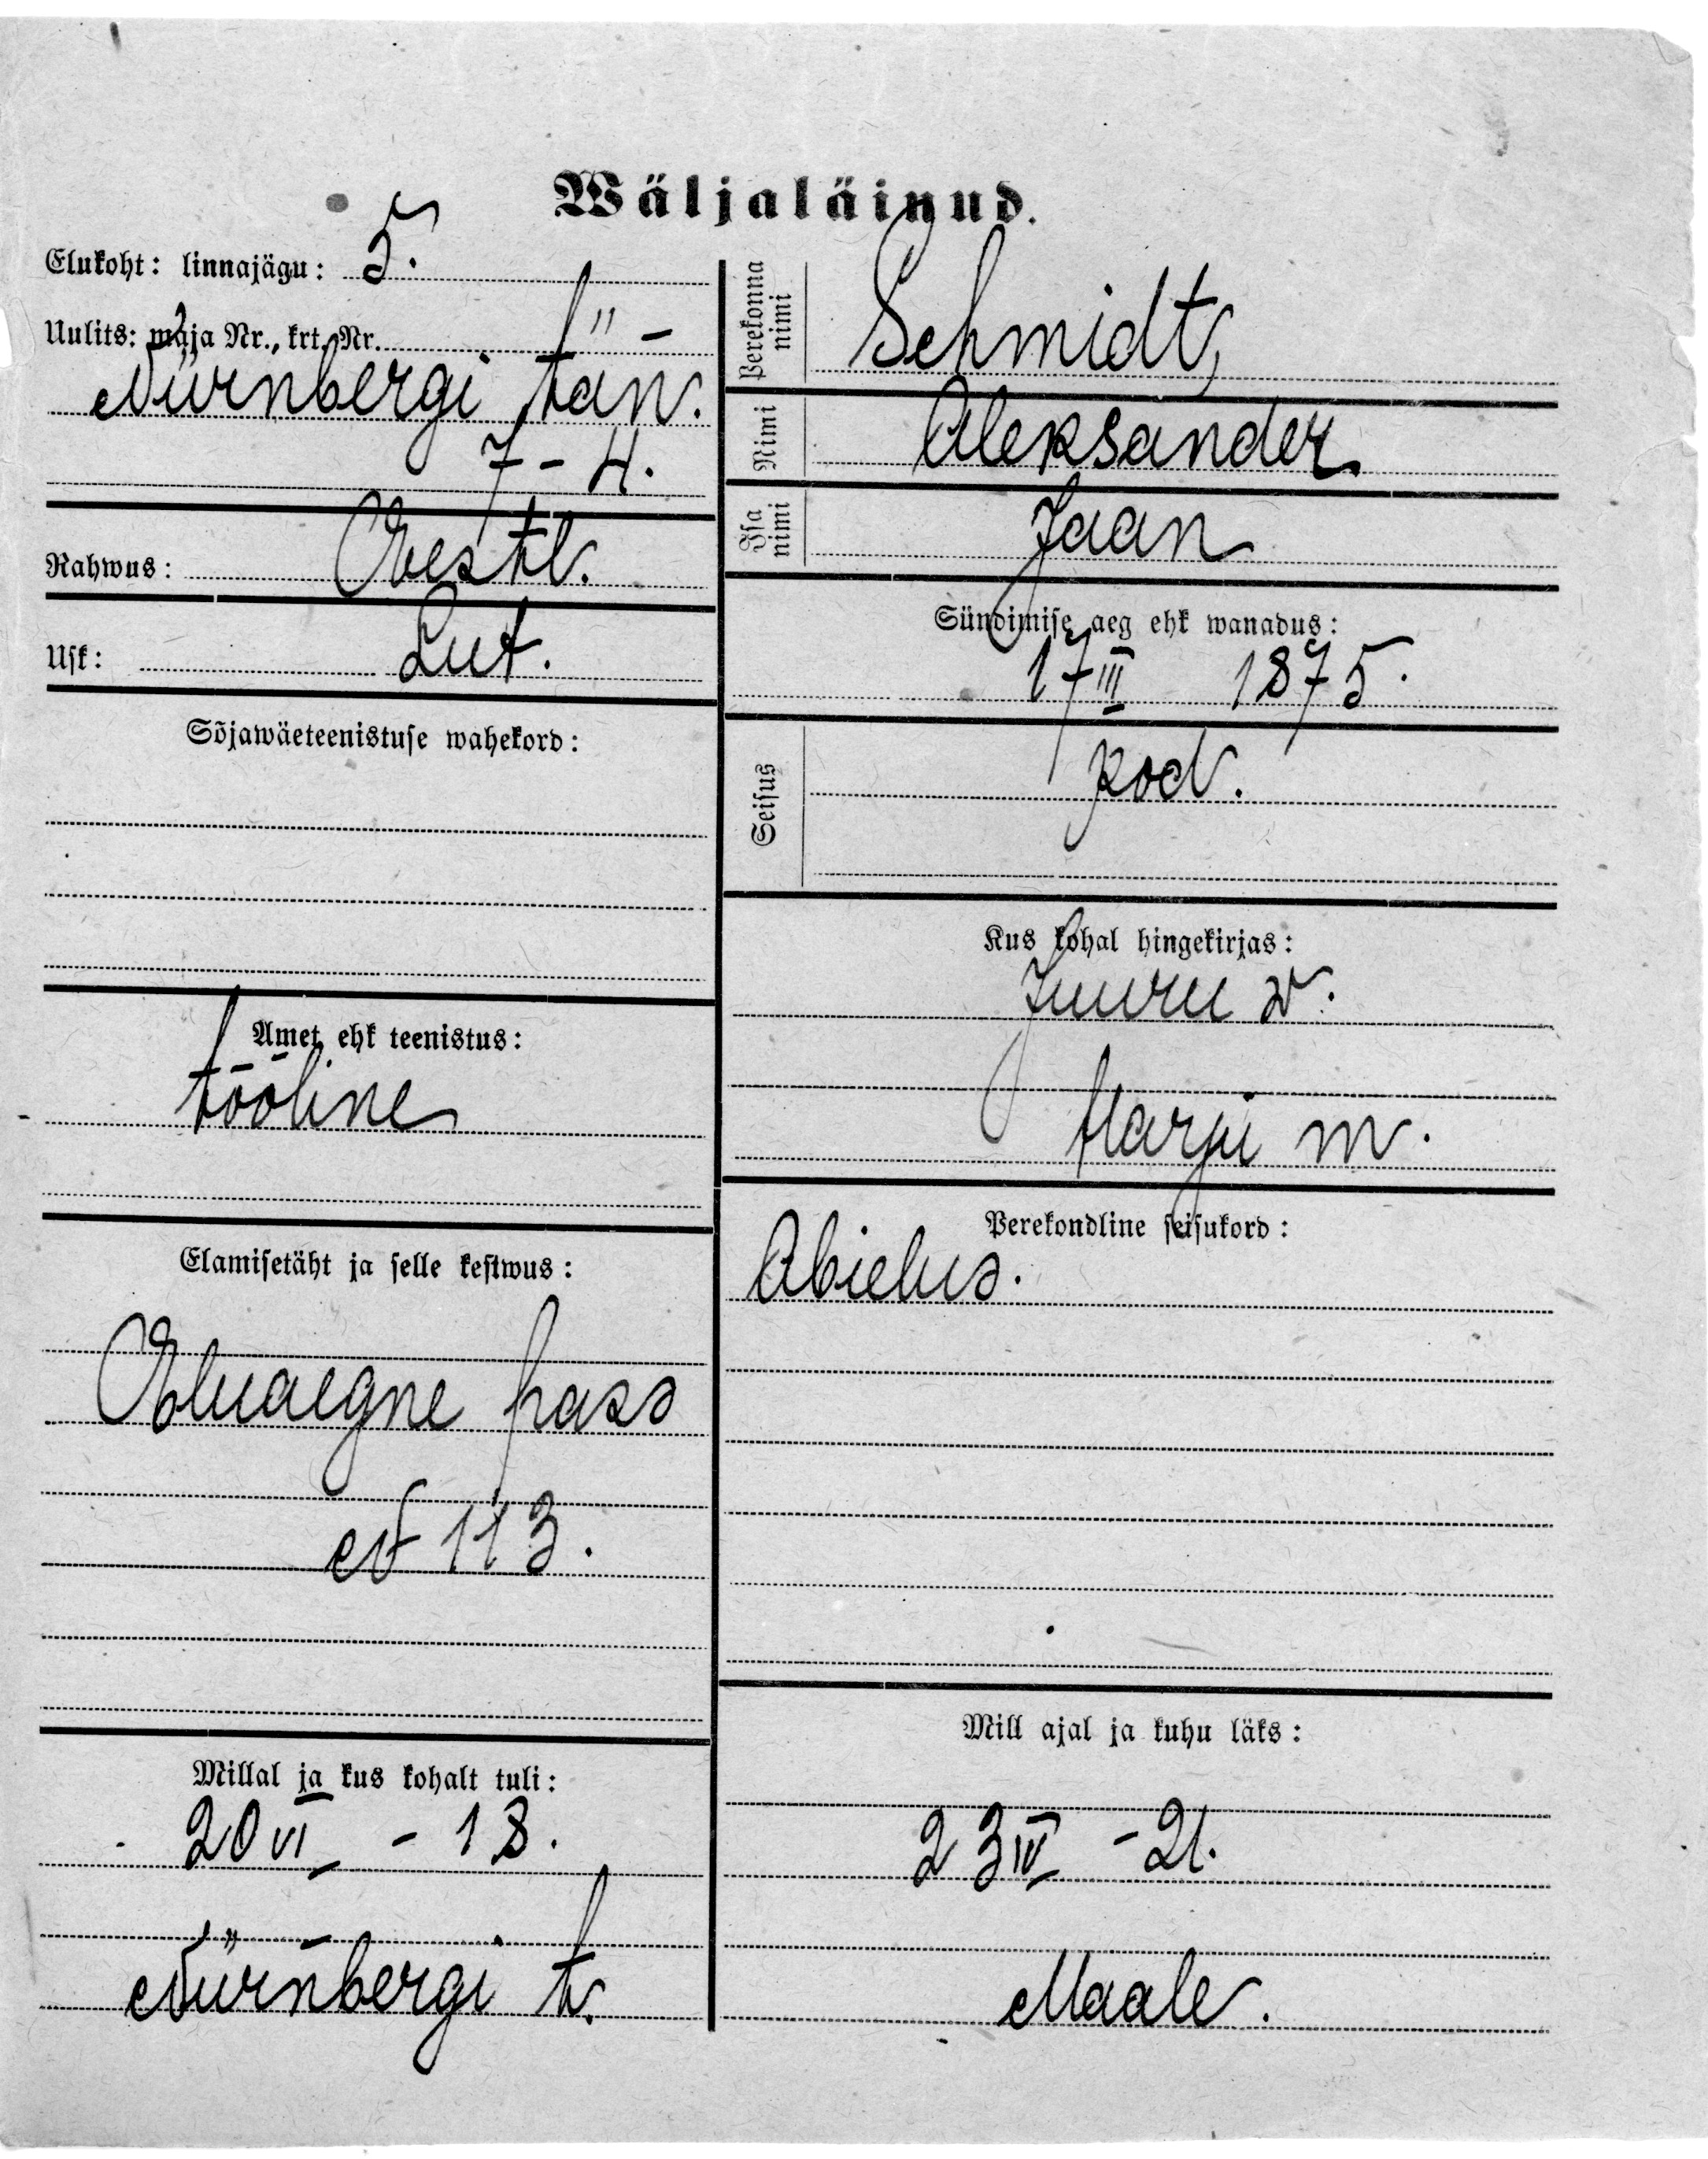 Wäljaläinud.
Elukoht: linnajägu: 5.
Uulits: maja Nr., krt. Nr.
Nürnbergi tän.
7-4.
Rahwus: Eestl.
Usk: Lut.
Sõjawäeteenistuse wahekord:
Amet ehk teenistus:
tööline
Elamisetäht ja selle kestwus:
Eluaegne pass
№ 113.
Millal ja kus kohalt tuli:
20 VI - 18.
Nürnbergi t.
Perekonna nimi
Schmidt,
Nimi
Aleksander
Isa nimi
Jaan
Sündimise aeg ehk wanadus:
17 III 1875.
Seisus
kod.
Kus kohal hingekirjas:
Juuru w.
Harju m.
Perekondline seisukord:
Abielus.
Mill ajal ja kuhu läks:
23 IV - 21.
Maale.